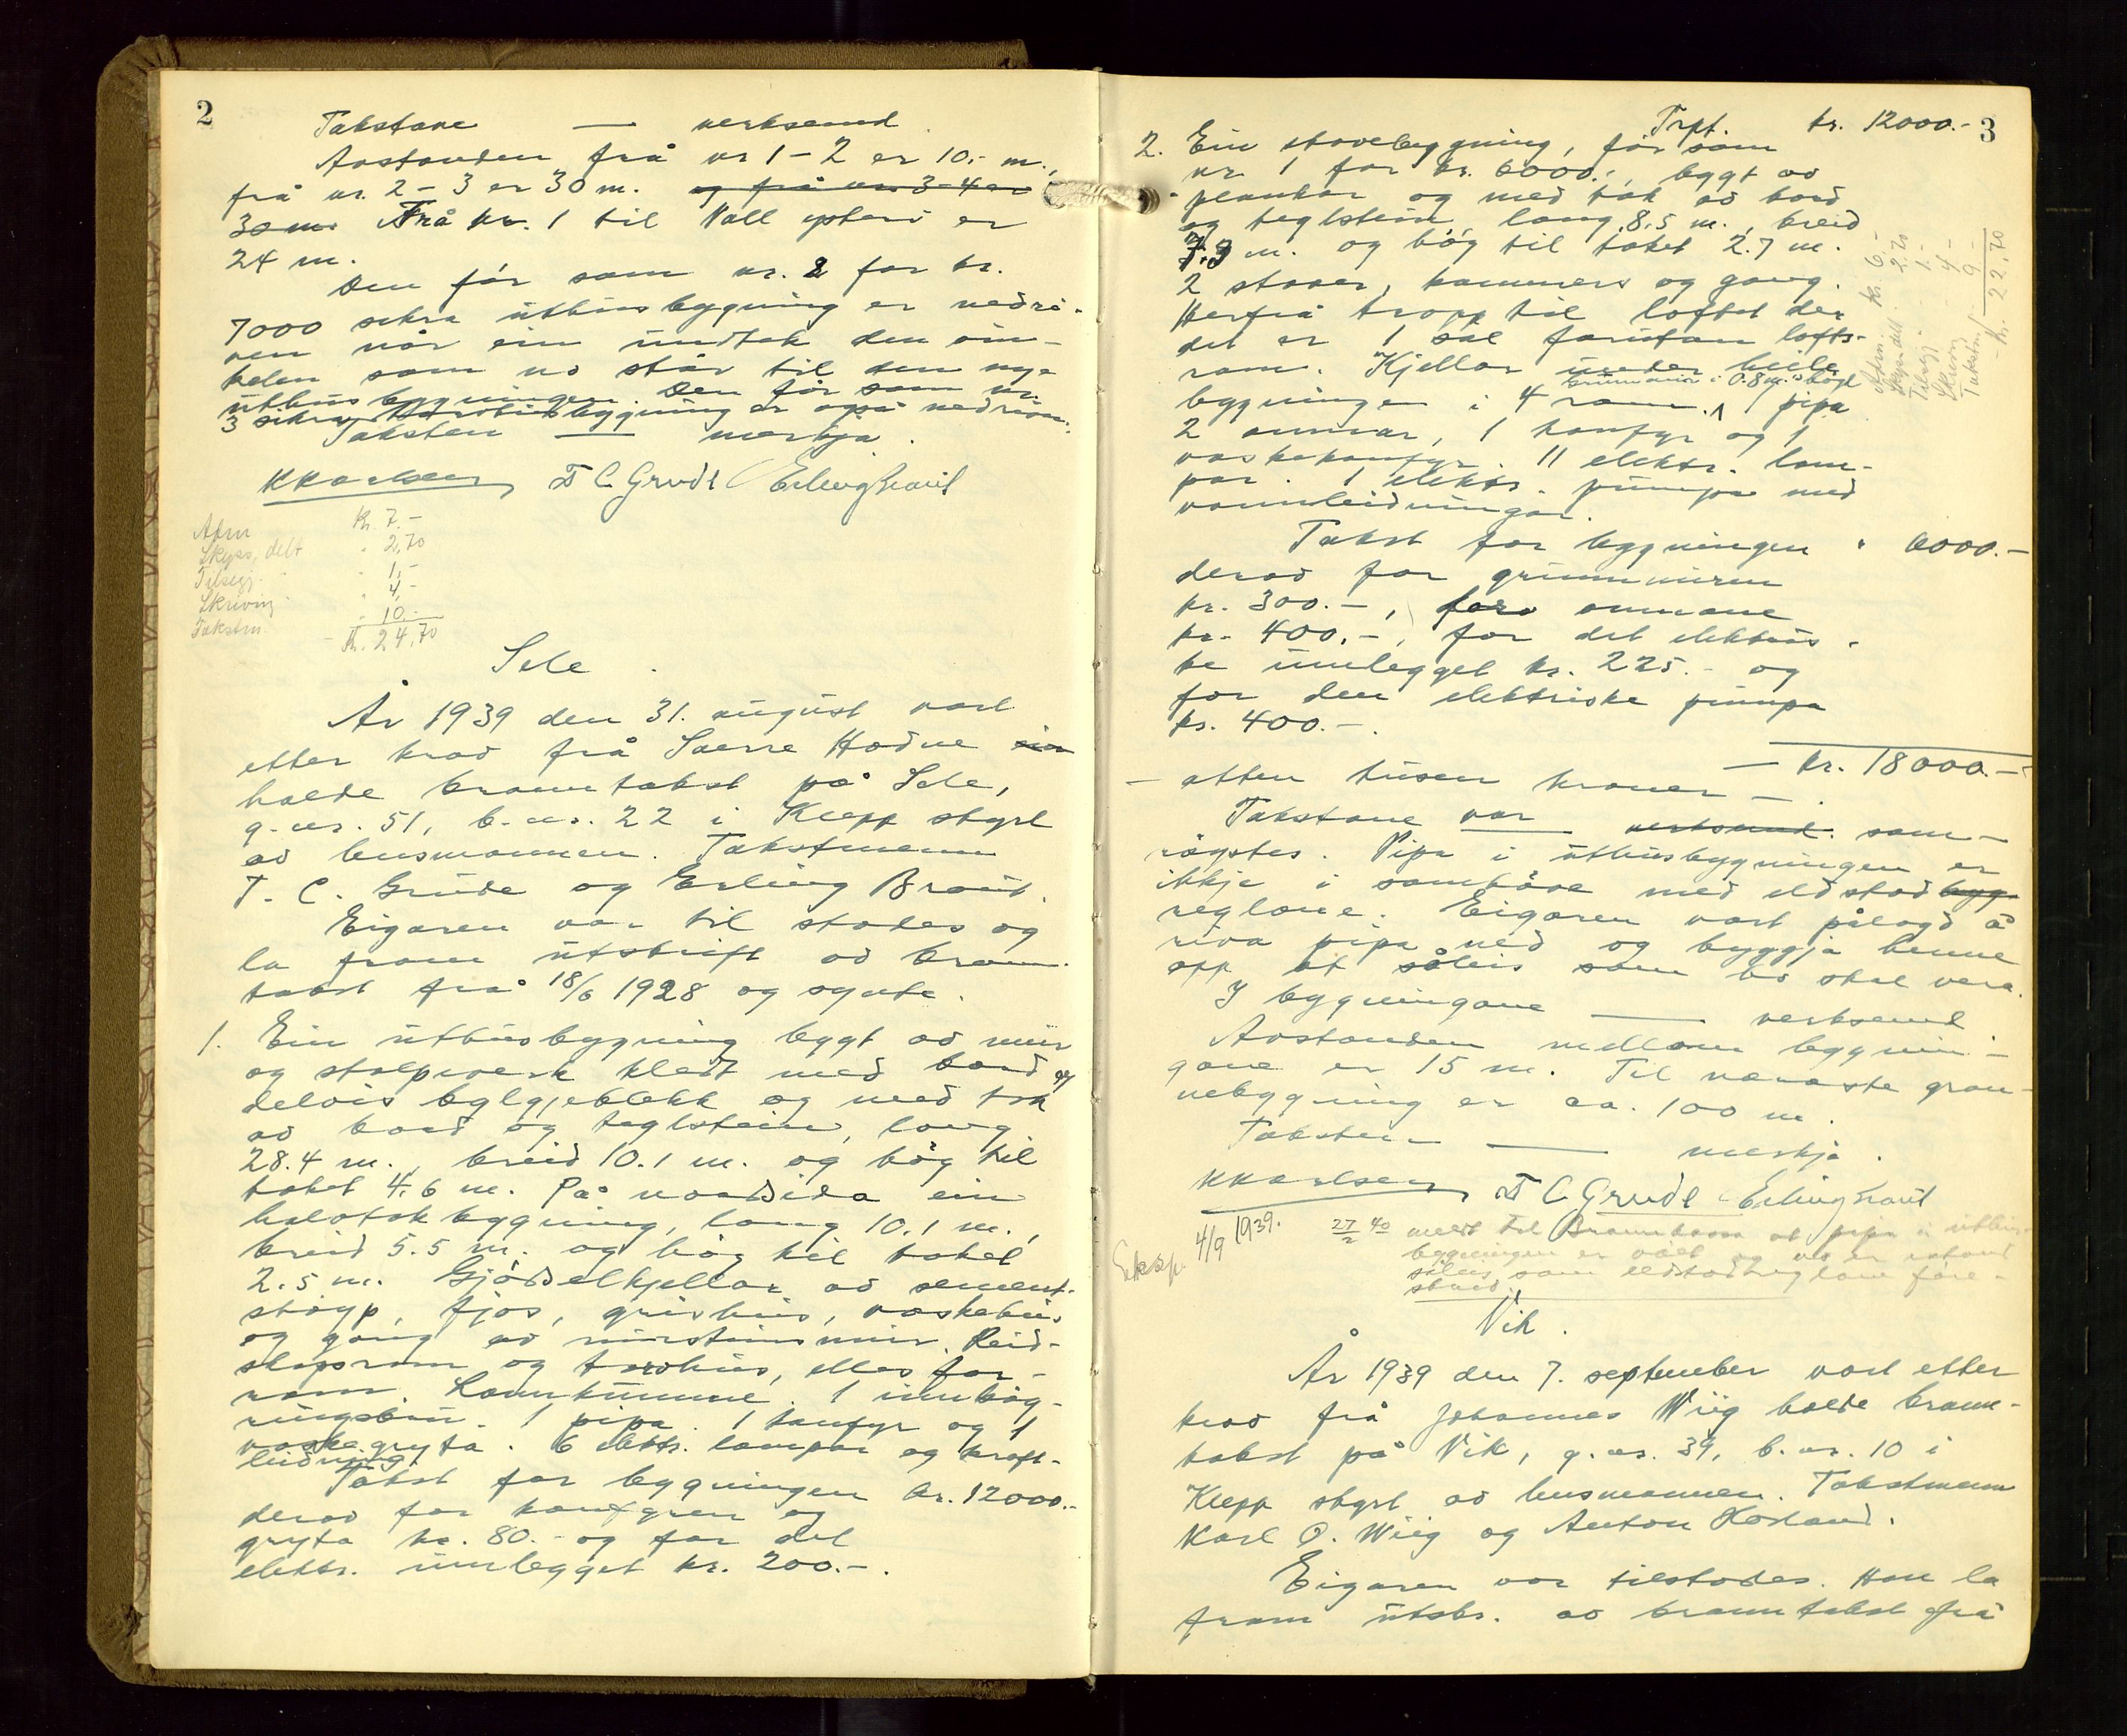 2
Takstane — verksemd.
Avstanden frå nr 1 - 2 er 10,- m.,
frå nr. 2 - 3 er 30 m. og frå nr. 3-4 er
30 m. Frå nr. 1 til Voll ysteri er
24 m.
Den før som nr. 2 for kr.
7000 sikra uthusbygning er nedri-
ven når ein undtek den vin-
kelen som no står til den nye
uthusbygningen. Den før som nr.
3 sikra bygning er også nedriven.
Taksten — merkja.
KKarlsen T C Grude Erling Braut
Afrn Kr. 7.-
Skyss, delt " 2,70
Tilsegj. " 1,-
Skriving " 4,-
Takstm. " 10.-
Kr. 24,70
Sele.
År 1939 den 31. august vart
etter krav frå Sverre Hodne ein
halde branntakst på Sele,
g.nr. 51, b.nr. 22 i Klepp styrt
av lensmannen. Takstmenn
T. C. Grude og Erling Braut.
Eigaren var til stades og
la fram utskrift av brann-
takst frå 18/6 1928 og synte.
1. Ein uthusbygning bygt av mur
og stolpverk kledt med bord og
delvis bylgjeblekk og med tak
av bord og teglstein, lang
28.4 m., breid 10.1 m. og høg til
taket 4.6 m. På nordsida ein
halvtak bygning, lang 10.1 m.,
breid 5.5 m. og høg til taket
2.5 m. Gjødselkjellar av sement-
støyp, fjos, grishus, vaskehus
og gang av mursteinsmur. Reid-
skapsrom og torvhus, elles for-
rom. Landkumme. 1 innkøy-
ringsbru. 1 pipa. 1 komfyr og 1
vaskegryta. 6 elektr. lampar og kraft-
leidning.
Takst for bygningen kr. 12000.-
derav for komfyren og
gryta kr. 80.- og for det
elektr. innlegget kr. 200.-.
3
Trpt. kr. 12000.-
2. Ein stovebygning, før som
nr 1 for kr. 6000.-, bygt av
plankar og med tak av bord
og teglstein, lang 8.5 m., breid
7.3 m. og høg til taket 2.7 m.
2 stover, kammers og gang.
Herfrå tropp til loftet der
det er 1 sal forutan lofts-
rom. Kjellar under heile
bygningen i 4 rom. Grunnmur i 0.8 m. høgd 1 pipa
2 omnar, 1 komfyr og 1
vaskekomfyr. 11 elektr. lam-
par. 1 elektr. pumpe med
vannleidningar.
Afrn. Kr. 6.-
Skyss delt " 2.70
Tilsegj. " 1.-
Skriving " 4.-
Takstm. " 9.-
Kr. 22,70
Takst for bygningen " 6000.-
derav for grunnmuren
kr. 300.-, for omnane
kr. 400.-, for det elektris-
ke innlegget kr. 225.- og
for den elektriske pumpa
kr. 400.-.
— kr. 18000.-
— atten tusen kroner —.
Takstane var — verksemd. sam-
røystes. Pipa i uthusbygningen er
ikkje i samhøve med eldstad byg-
reglane. Eigaren vart pålagd å
riva pipa ned og byggja henne
opp at såleis som ho skal vera.
I bygningane — verksemd.
Avstanden mellom bygnin-
gane er 15 m. Til næraste gran-
nebygning er ca. 100 m.
Taksten — merkja.
KKarlsen T C Grude Erling Braut
Eksp. 4/9 1939.
27/2 40 meldt til Brannkassa at pipa i uthus-
bygningen er vølt og no er istand
såleis som eldstadreglane føre-
skriv.
Vik.
År 1939 den 7. september vart etter
krav frå Johannes Wiig halde brann-
takst på Vik, g.nr. 39, b.nr. 10 i
Klepp styrt av lensmannen. Takstmenn
Karl O. Wiig og Anton Horland.
Eigaren var tilstades. Han la
fram utskr. av branntakst frå